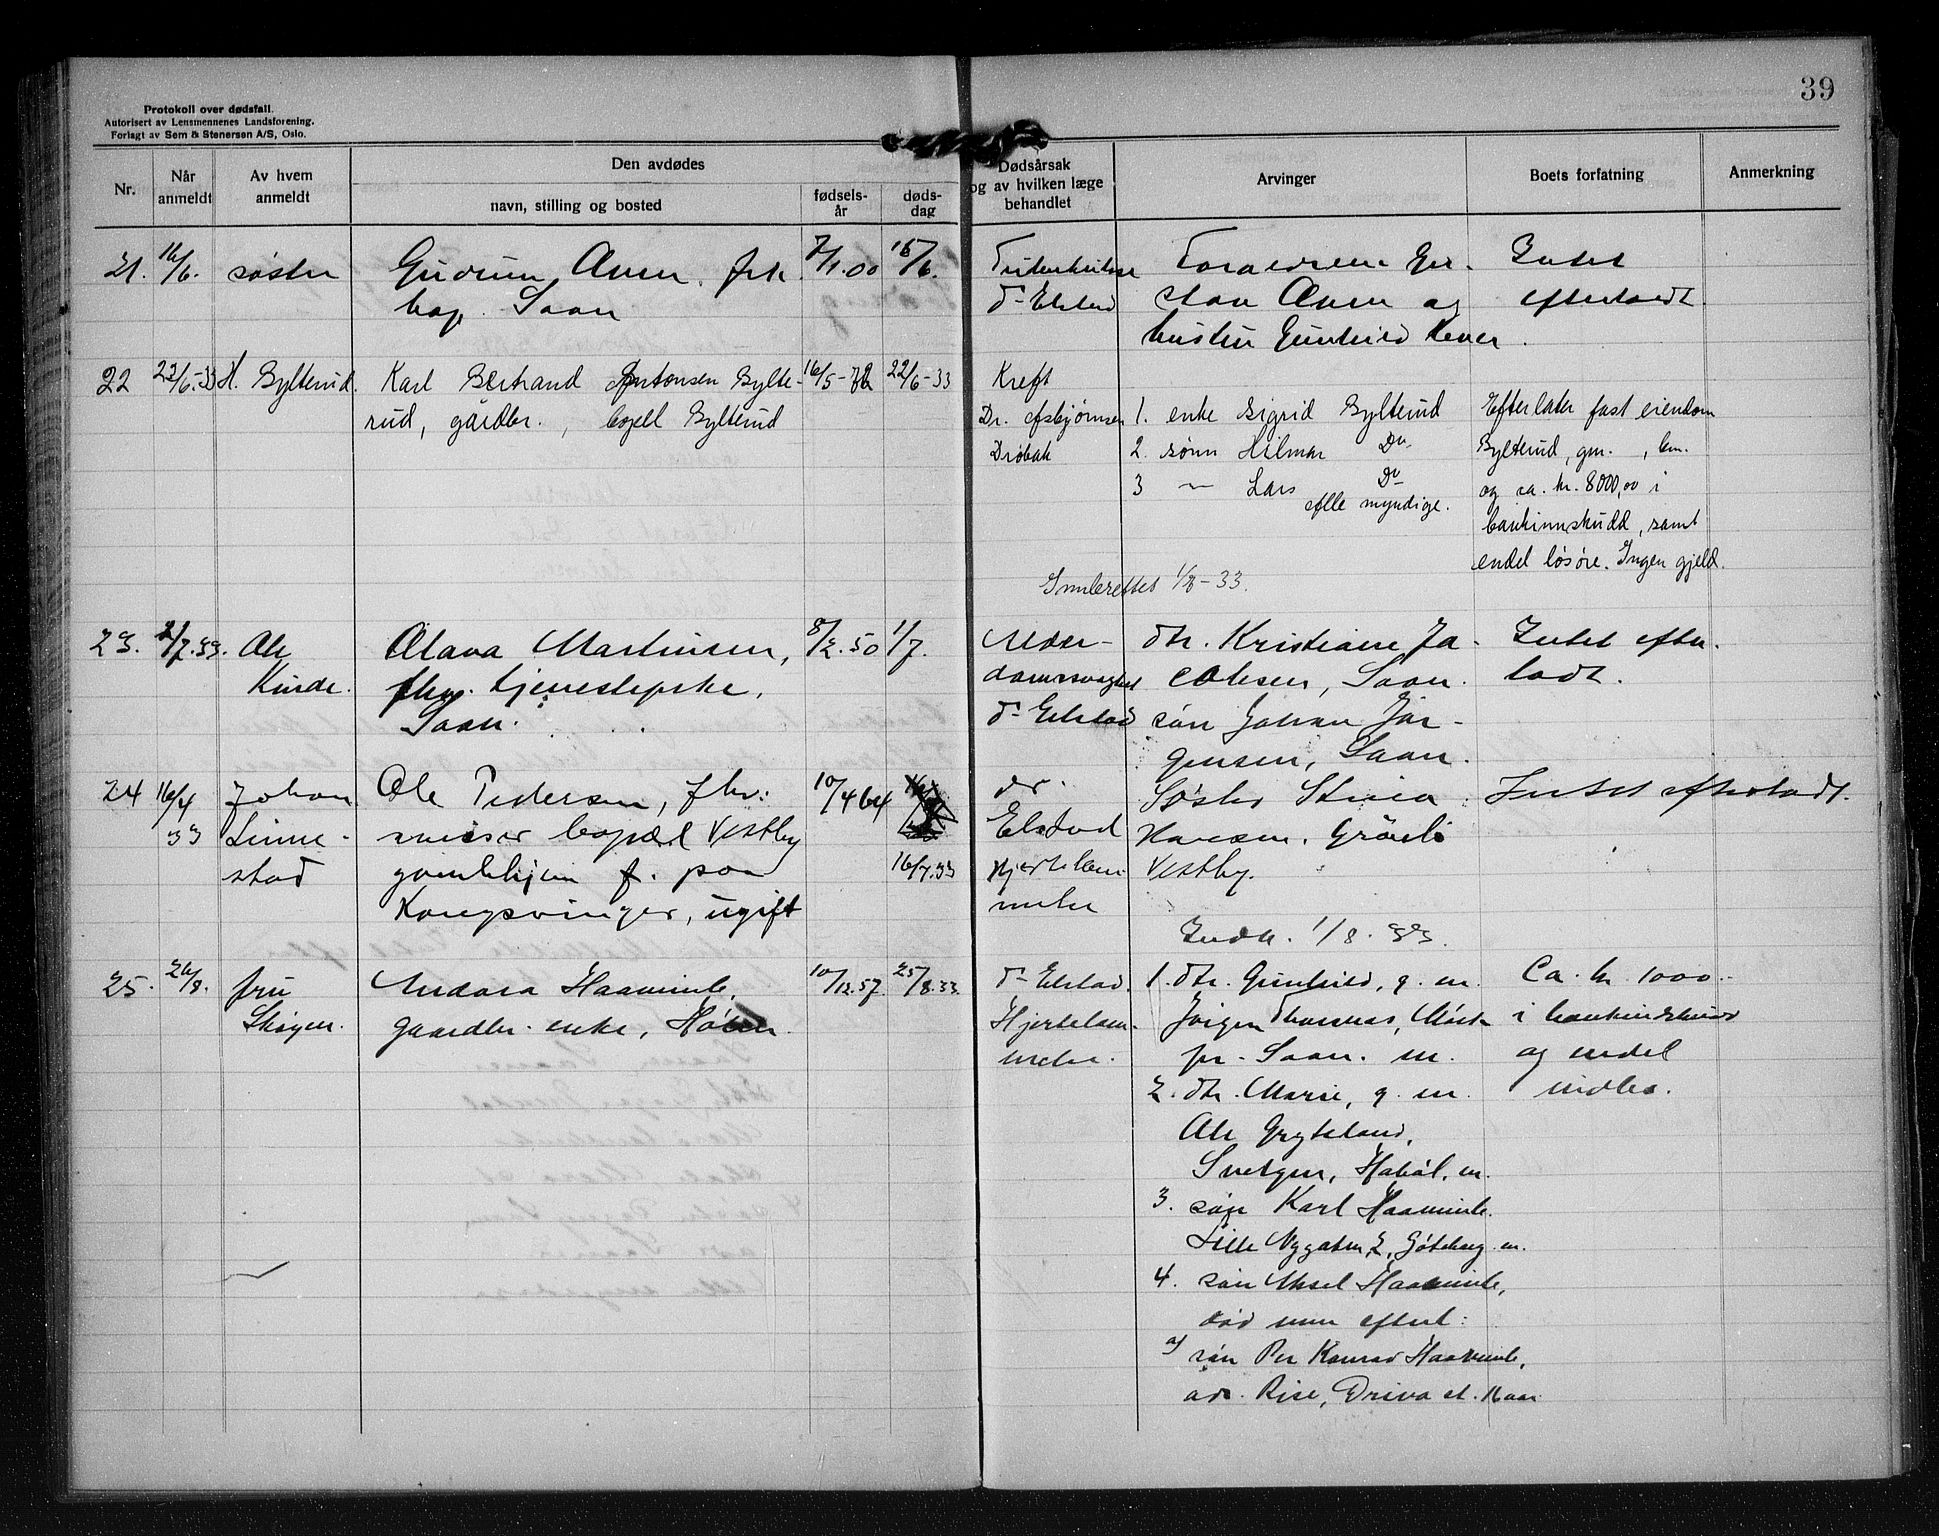 39
Protokoll over dødsfall.
Autorisert av Lensmennenes Landsforening.
Forlagt av Sem & Stenersen A/S, Oslo.
Nr.
Når anmeldt
Av hvem anmeldt
Den avdødes
navn, stilling og bosted
fødsels-år
døds-dag
Dødsårsak og av hvilken læge behandlet
Arvinger
Boets forfatning
Anmerkning
21. 16/6. søster
7/1.00
d- Elstad
Intet
efterladt
22 23/6-33 H. Bylterud
Karl Bertrand Antonsen Bylte-
rud, gårdbr. , bopell Bylterud
22/6-33
Kreft
Dr. Asbjørnsen
Drøbak
1. enke Sigrid Bylterud
2. sønn Hilmar Do
3 — Lars Do
Alle myndige.
Efterlater fast eiendom
Bylterud, gnr. , bnr.
og ca. kr. 8000,00 i
bankinnskudd, samt
endel løsøre. Ingen gjeld.
Innberettet 1/8-33.
23. 2/7.33. Ole
Kinde.
Olava Martinsen,
fhv. tjenestepike,
Saan.
8/2.50 1/7.
Alder-
domssvaghet
d- Elstad
dtr. Kristiane Ja
cobsen, Saan.
søn Johan Jør-
gensen, Saan.
Intet efter
ladt.
24 16/7
33
Johan
Linne-
stad
Ole Pedersen, fhv:
murer bopæl Vestby
gamlehjem f. paa
Kongsvinger, ugift
10/4 64
16/7.33
dr.
Elstad
Hjertelam
melse
Søster Stina
Hansen. Grøneli
Vestby.
Intet efterladt.
Indb. 1/8.33.
25. 26/8. fru
Skogen.
Andora Haavimb,
gaardbr. enke,
10/12.57. 25/8.33.
d- Elstad.
Hjertelam-
melse.
1. dtr. Gunhild, g. m.
Jørgen Thomas,
pr. Saan. m.
2. dtr. Marie, g. m.
Ole Gryteland,
Hobøl. m.
3. søn Karl Haavimb.
Lille Nygaten 2, Göteborg m.
4. søn Aksel Haavimb,
død men efterl:
a) søn Per Konrad Haavimb,
adr. Rise, Driva st.
Ca. kr 1000.-
i bankindskud
og endel
indbo.